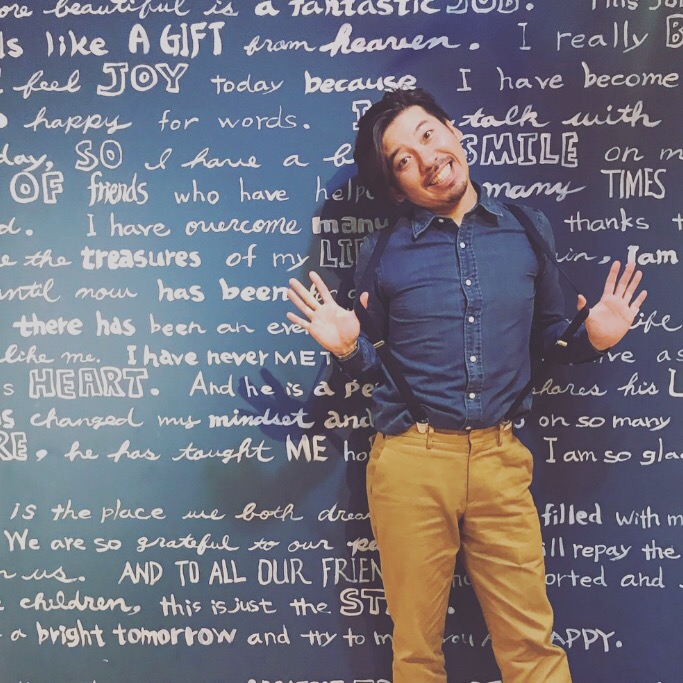 more beautiful is a fantastic JOB. This Jo
ls like A GIFT from heaven. I really B
I feel JOY today because I have become
o happy for words. I talk with
day, SO I have a b SMILE on m
OF friends who have help many TIMES
d. I have overcome many thanks t
e the treasures of my LI in, Iam
until now has been
there has been an eve life
like me. I have never MET ve as
s HEART. And he is a pe shares his L
s changed my mindset and on so many
RE, he has taught ME ho I am so gla
is the place we both drea filled with m
We are so grateful to our pa ll repay the
n us. AND TO ALL OUR FRIEN orted and
e children, this is just the ST
a bright tomorrow and try to m you APPY.